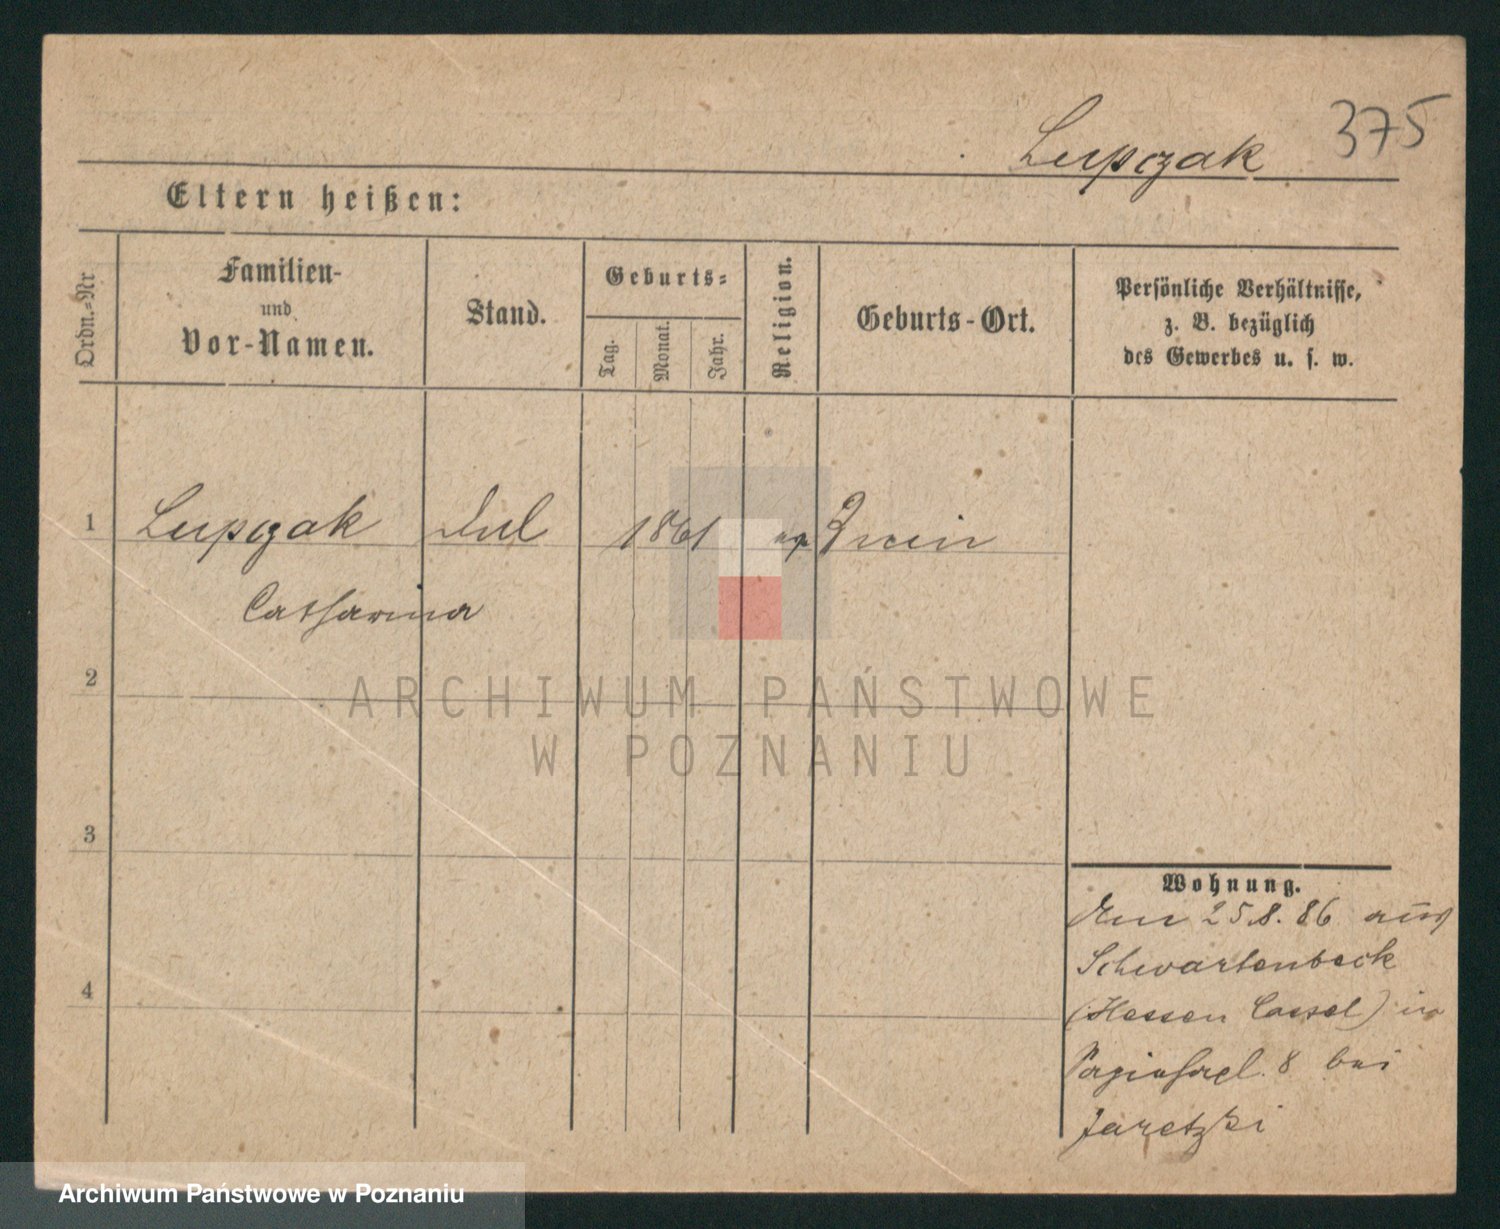 Lupczak 375
Eltern heißen:
Ordn.-Nr
Familien-
und
Vor-Namen.
Stand.
Geburts-
Tag.
Monat.
Jahr.
Religion.
Geburts-Ort.
Persönliche Verhältnisse,
z. B. bezüglich
des Gewerbes u. s. w.
1 Lupczak 1861
Catharina
2
ARCHIWUM PAŃSTWOWE
W POZNANIU
3
4
Wohnung.
25.8.86 aus
Schwartenbeck
(Hessen Cassel) in
8 bei
Jaretzki
Archiwum Państwowe w Poznaniu